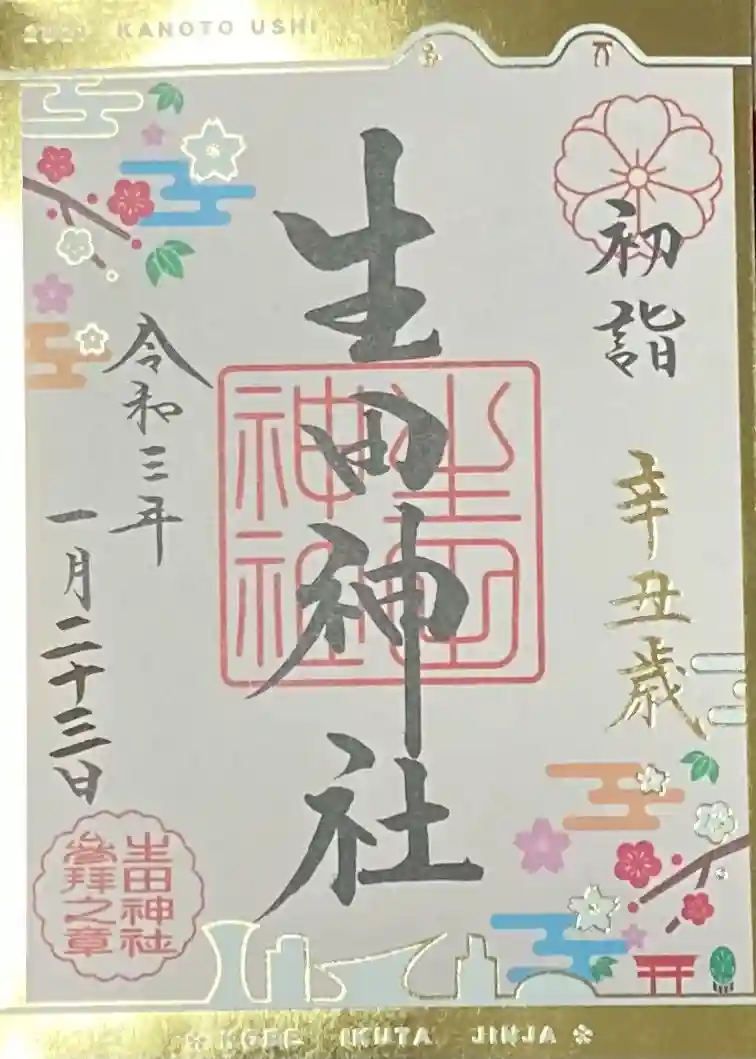 2021 KANOTO USHI
初詣
辛丑歳
生田神社
生田神社
令和三年
一月二十三日
生田神社
参拝之章
KOBE IKUTA JINJA